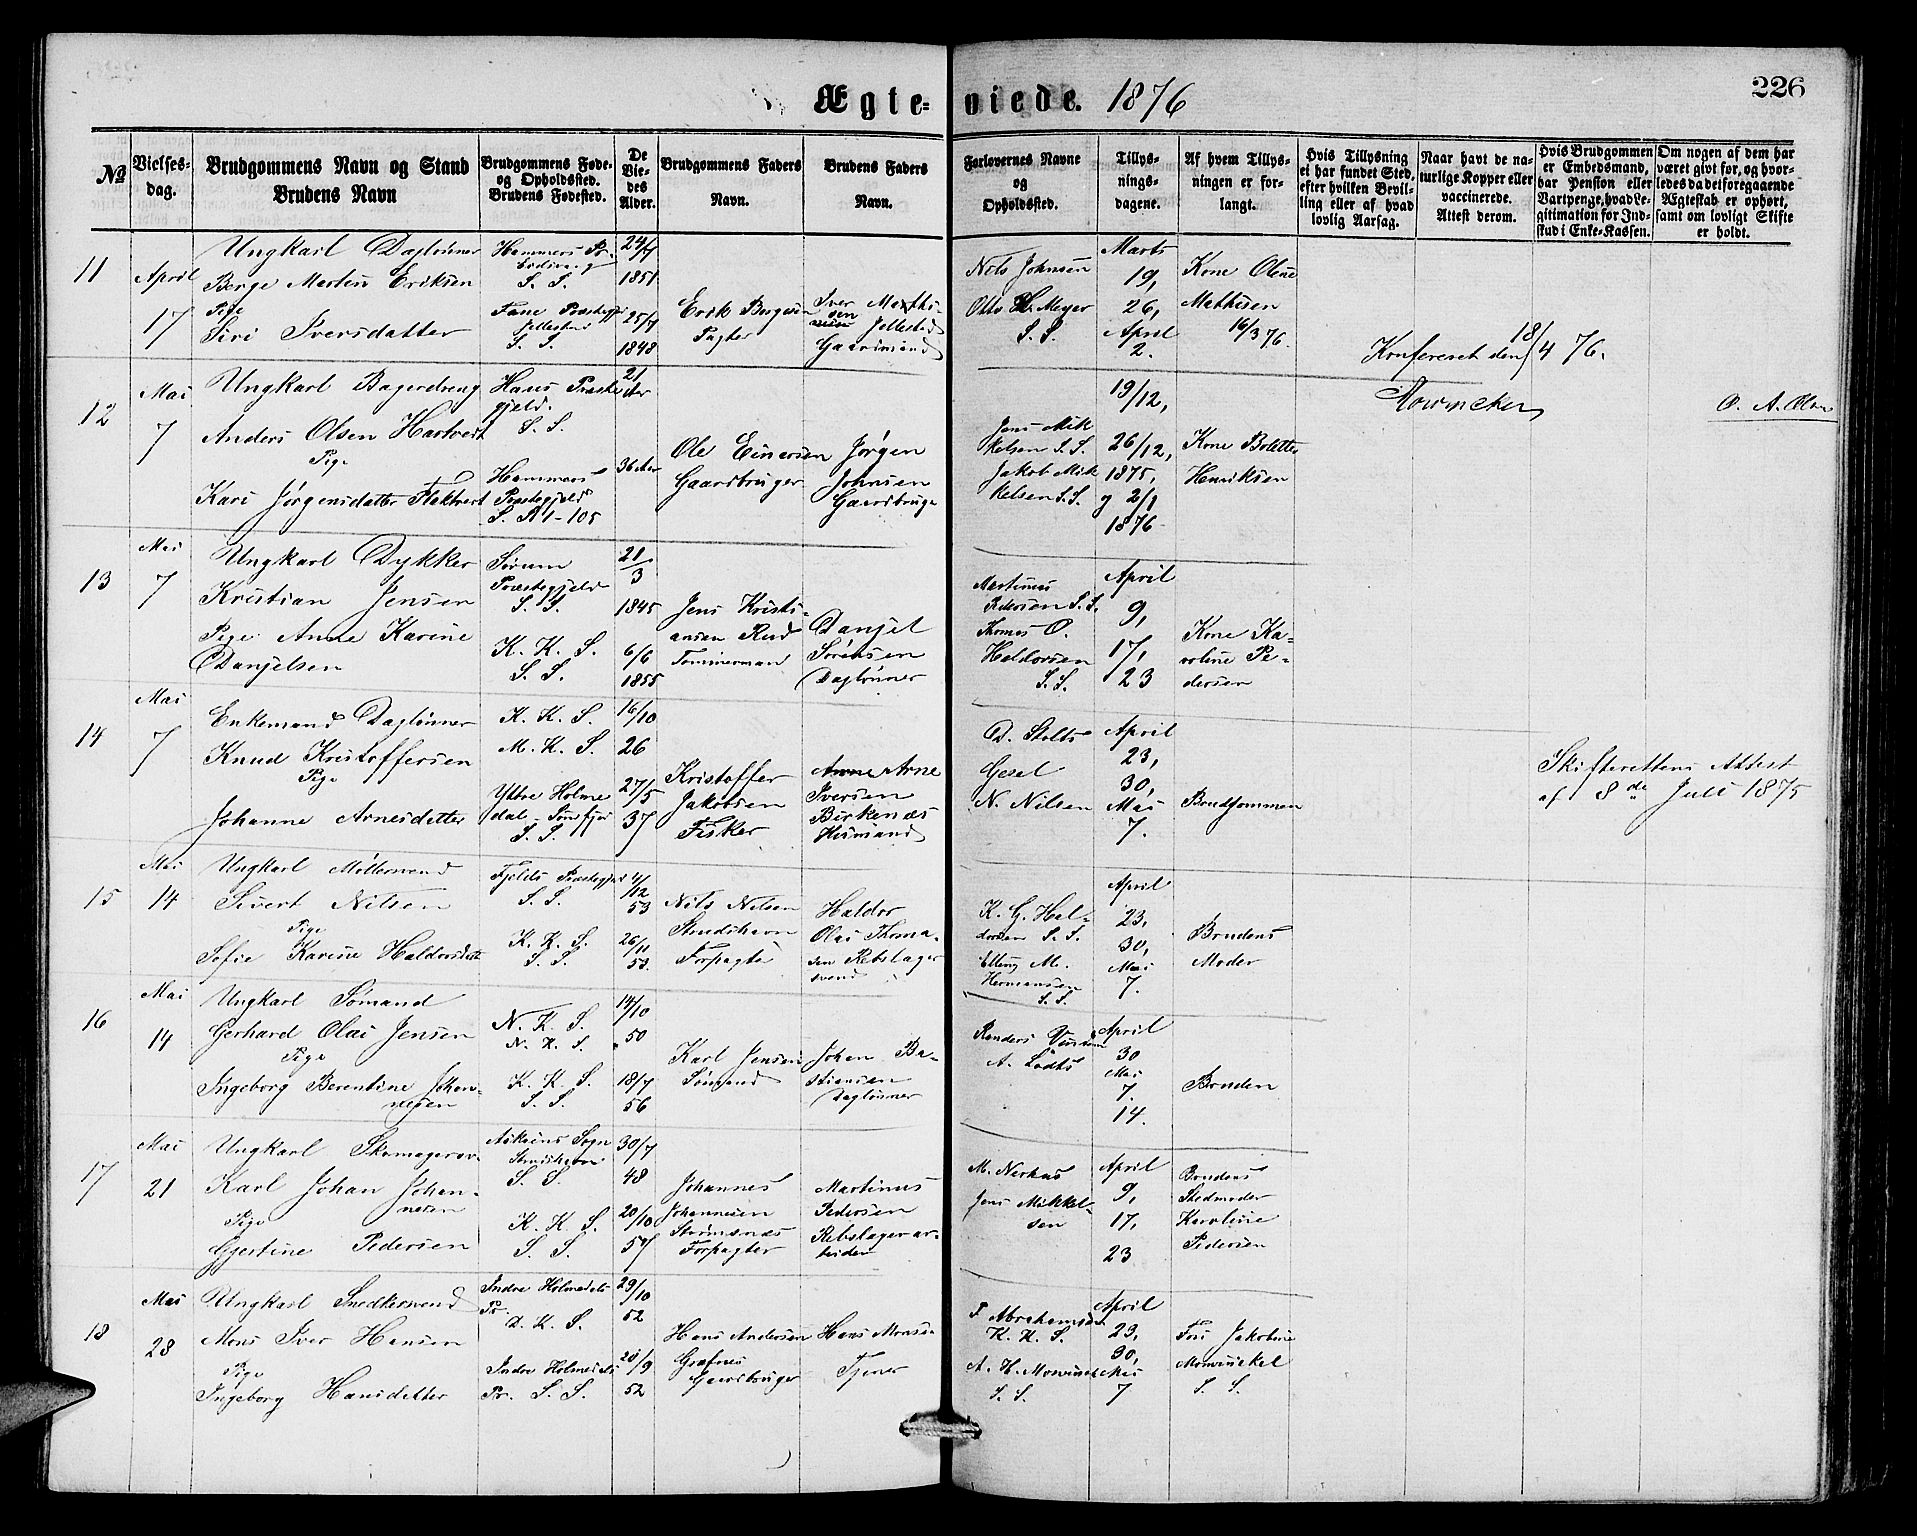 Ægte- viede. 1876
226
No
Vielses-
dag.
Brudgommens Navn og Stand
Brudens Navn
Brudgommens Føde-
og Opholdssted.
Brudens Fødested.
De
Vie-
des
Alder.
Brudgommens Faders
Navn.
Brudens Faders
Navn.
Forlovernes Navne
og
Opholdssted.
Tillys-
nings-
dagene.
Af hvem Tillys-
ningen er for-
langt.
Hvis Tillysning
ei har fundet Sted,
efter hvilken Bevil-
ling eller af hvad
lovlig Aarsag.
Naar havt de na-
turlige Kopper eller
vaccinerede.
Attest derom.
Hvis Brudgommen
er Embedsmand,
har Pension eller
Vartpenge, hvad Le-
gitimation for Ind-
skud i Enke-Kassen.
Om nogen af dem har
været gift før, og hvor-
ledes da det foregaaende
Ægteskab er ophørt,
samt om lovligt Skifte
er holdt.
11
April
17
Ungkarl Dagløner
Berge Martin Eriksen
Pige
Siri Iversdatter
Hammers Pr.
S. S.
Fane Præstegjld
Jellestad
S. S.
1851
25/7
1848
Erik Borgesen
Pagter
Iver Mathi-
sen
Jellestad
Gaardmand
Nils Johnsen
Otto H. Meyer
S. S.
Marts
19,
26,
April
2.
Kone Oline
Mathisen
16/3 76.
Konfereret den 18/4 76.
12
Mai
7
Ungkarl Bagerdreng
Anders Olsen Hartvert
Pige
Kari Jørgensdatter Flaktvert
Haus Præste
gjeld.
S. S.
Hammers
Præstegjeld
S. S. 1-105
21
Aar
36 Aar
Ole Einersen
Gaardbruger
Jørgen
Johnsen
Gaardbruge
Jens Mik
kelsen S. S.
Jakob Mik
kelsen S. S.
19/12,
26/12,
1875,
g 2/1
1876
Kone Bolette
Henriksen
Mowinckel
O. A. Olsen
13
Mai
7
Ungkarl Dykker
Kristian Jensen
Pige Anne Karine
Danjelsen
Sørum
Præstegjeld
S. S.
K. K. S.
S. S.
21
3
1845
6/6
1855
Jens Kristi-
ansen Rud
Tømmermand
Danjel
Sørensen
Dagløner
Martinus
Pedersen S. S.
Thomas O.
Haldorsen
S. S.
April
9,
17,
23
Kone Ka-
roline Pe-
dersen
14
Mai
7
Enkemand Dagløner
Knud Kristoffersen
Pige
Johanne Arnesdatter
K. K. S.
M. K. S.
Yttre Holme
dal - Søndfjor
S. S.
16/10
26
27/5
37
Kristoffer
Jakobsen
Fisker
Arne
Iversen
Birkenæs
Husmand
D. Stolts
Gesel
N. Nilsen
April
23,
30,
Mai
7.
Brudgommen
Skifterettens Attest
af 8de Juli 1875
15
Mai
14
Ungkarl Møllersvend
Sivert Nilsen
Pige
Sofie Karine Haldorsdatt
Fjelds Præstegjeld
S. S.
K. K. S.
S. S.
4/12
53
26/11
53.
Nils Nilsen
Strudshavn
Forpagter
Haldor
Olai Thoma-
sen Rebslager
svend
K. G. Hal-
dorsen S. S.
Elling M.
Hermansen
S. S.
April
23,
30,
Mai
7.
Brudens
Moder
16
Mai
14
Ungkarl Sømand
Gerhard Olai Jensen
Pige
Ingeborg Berentine Johan-
nesen
N. K. S.
N. K. S.
K. K. S.
S. S.
14/10
50
18/7
56
Karl Jensen
Sømand
Johan Ba-
stiansen
Dagløner
A. Lodts
April
30
Mai
7.
14.
Bruden
17
Mai
21
Ungkarl Skomagersv.
Karl Johan Johan-
nesen
Pige
Gjertine Pedersen
Askøens Sogn
Strudshavn
S. S.
K. K. S.
S. S.
30/7
48
20/10
57
Johannes
Johannesen
Strømsnæs
Forpagter
Martinus
Pedersen
Rebslagerar-
beider
M. Nerhus
Jens Mikkel-
sen
April
9,
17,
23
Brudens
Stedmoder
Karoline
Pedersen
18
Mai
28
Ungkarl Snedkersvend
Mons Iver Hansen
Pige
Ingeborg Hansdatter
Indre Holmedals
Pr.
D. K. S.
Indre Holmedals
Pr. S. S.
29/10
52
20/9
52
Hans Andersen
Gaardbruger
Hans Monsen
Tjener
F. Abrahamsen
K. K. S.
A. H. Mowinckel
S. S.
April
23,
30,
Mai
7
Frøi Jakobine
Mowinckel
S. S.